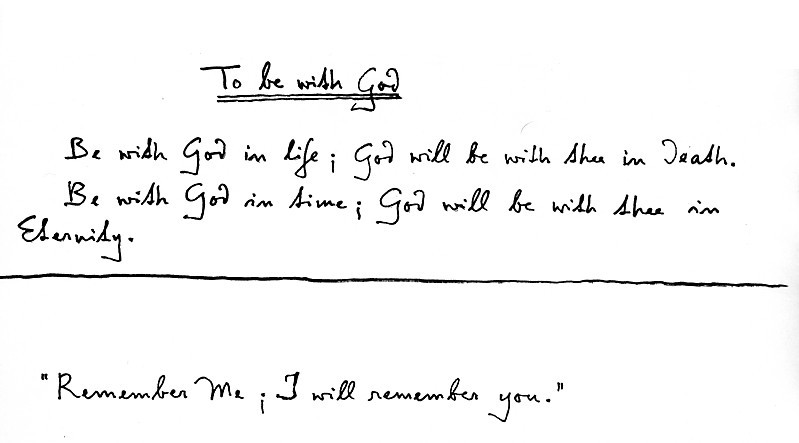 To be with God
Be with God in life; God will be with thee in Death.
Be with God in time; God will be with thee in
Eternity.
"Remember Me; I will remember you."